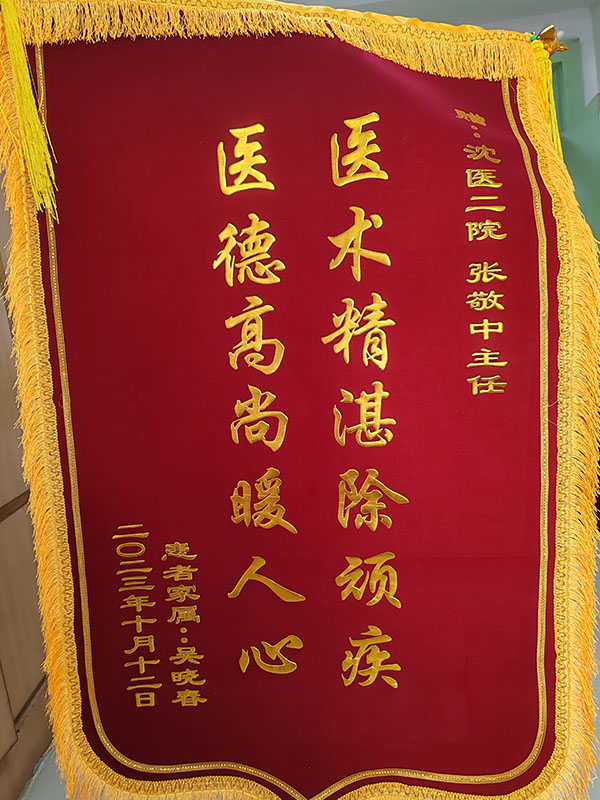 赠:沈医二院 张敬中主任
医术精湛除顽疾
医德高尚暖人心
患者家属:吴晓春
二〇二三年十月十二日